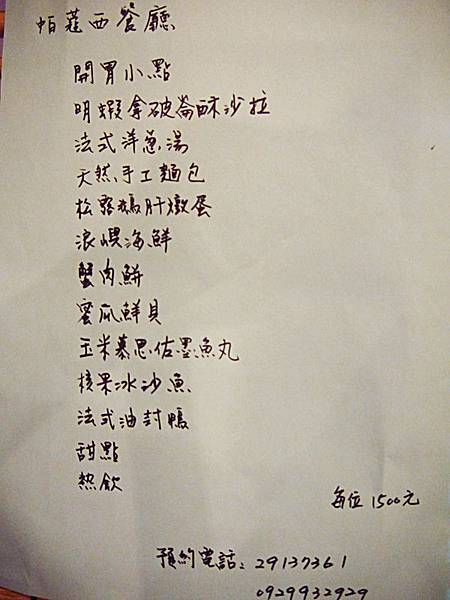 帕蔻西餐廳
開胃小點
明蝦拿破崙酥沙拉
法式洋蔥湯
天然手工麵包
松露鵝肝燉蛋
浪煨海鮮
蟹肉餅
蜜瓜鮮貝
玉米慕思佐墨魚丸
核果冰沙魚
法式油封鴨
甜點
熱飲
每位 1500元
預約電話：29137361
0929932929